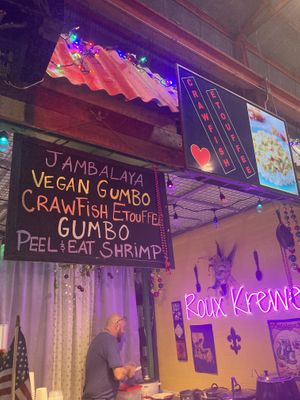 JAMBALAYA
VEGAN GUMBO
CRAWFISH ETOUFFEE
GUMBO
PEEL & EAT SHRIMP
CRAWFISH
ETOUFFEE
Roux Krewe